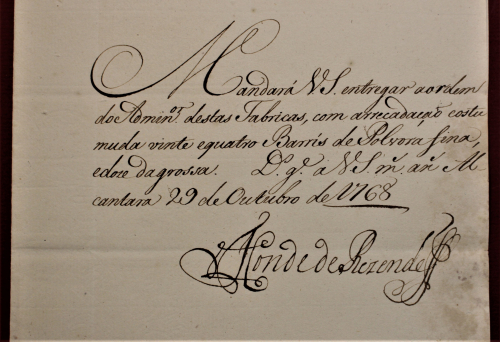 Mandará V.S. entregar a ordem
do Admin.or destas Fabricas, com arrecadação costu
muda vinte equatro Barrîs de Polvora fina,
edoze dagrossa. D.s g.e a V.S. m.s an.s Al
cantara 29 de Outubro de 1768
Conde de Rezende